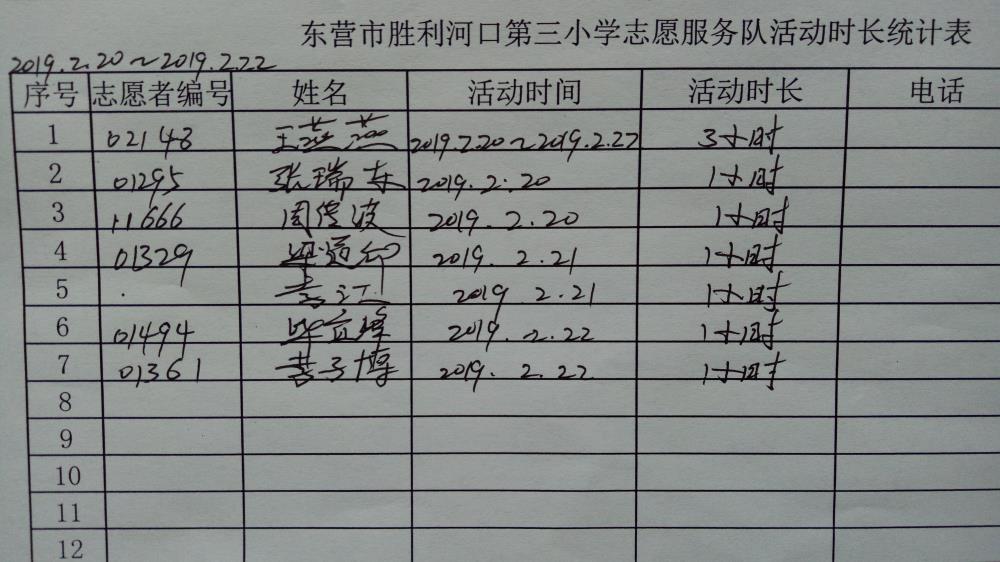 东营市胜利河口第三小学志愿服务队活动时长统计表
2019.2.20~2019.2.22
序号 志愿者编号 姓名 活动时间 活动时长 电话
1 02148 王燕燕 2019.2.20~2019.2.22 3小时
2 01295 张瑞东 2019.2.20 1小时
3 11666 周俊波 2019.2.20 1小时
4 01329 2019.2.21 1小时
5 2019.2.21 1小时
6 01494 2019.2.22 1小时
7 01361 2019.2.22 1小时
8
9
10
11
12